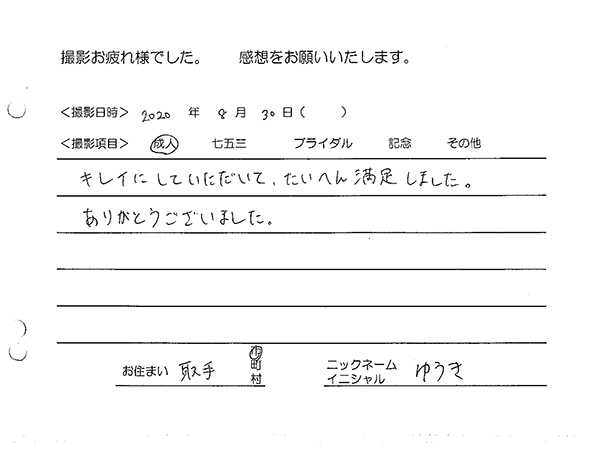 撮影お疲れ様でした。　感想をお願いいたします。
＜撮影日時＞ 2020 年 8 月 30 日（　　）
＜撮影項目＞ 成人　七五三　ブライダル　記念　その他
キレイにしていただいて、たいへん満足しました。
ありがとうございました。
お住まい 取手 市町村　ニックネーム イニシャル ゆうき